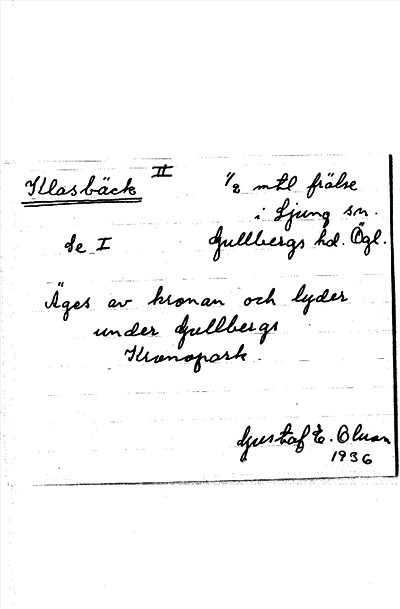 Klasbäck II
1/2 mtl frälse
i Ljung sn.
Se I
Gullbergs hd. Ögl.
Äges av kronan och lyder
under Gullbergs
Kronopark.
Gustaf E. Olsson
1936